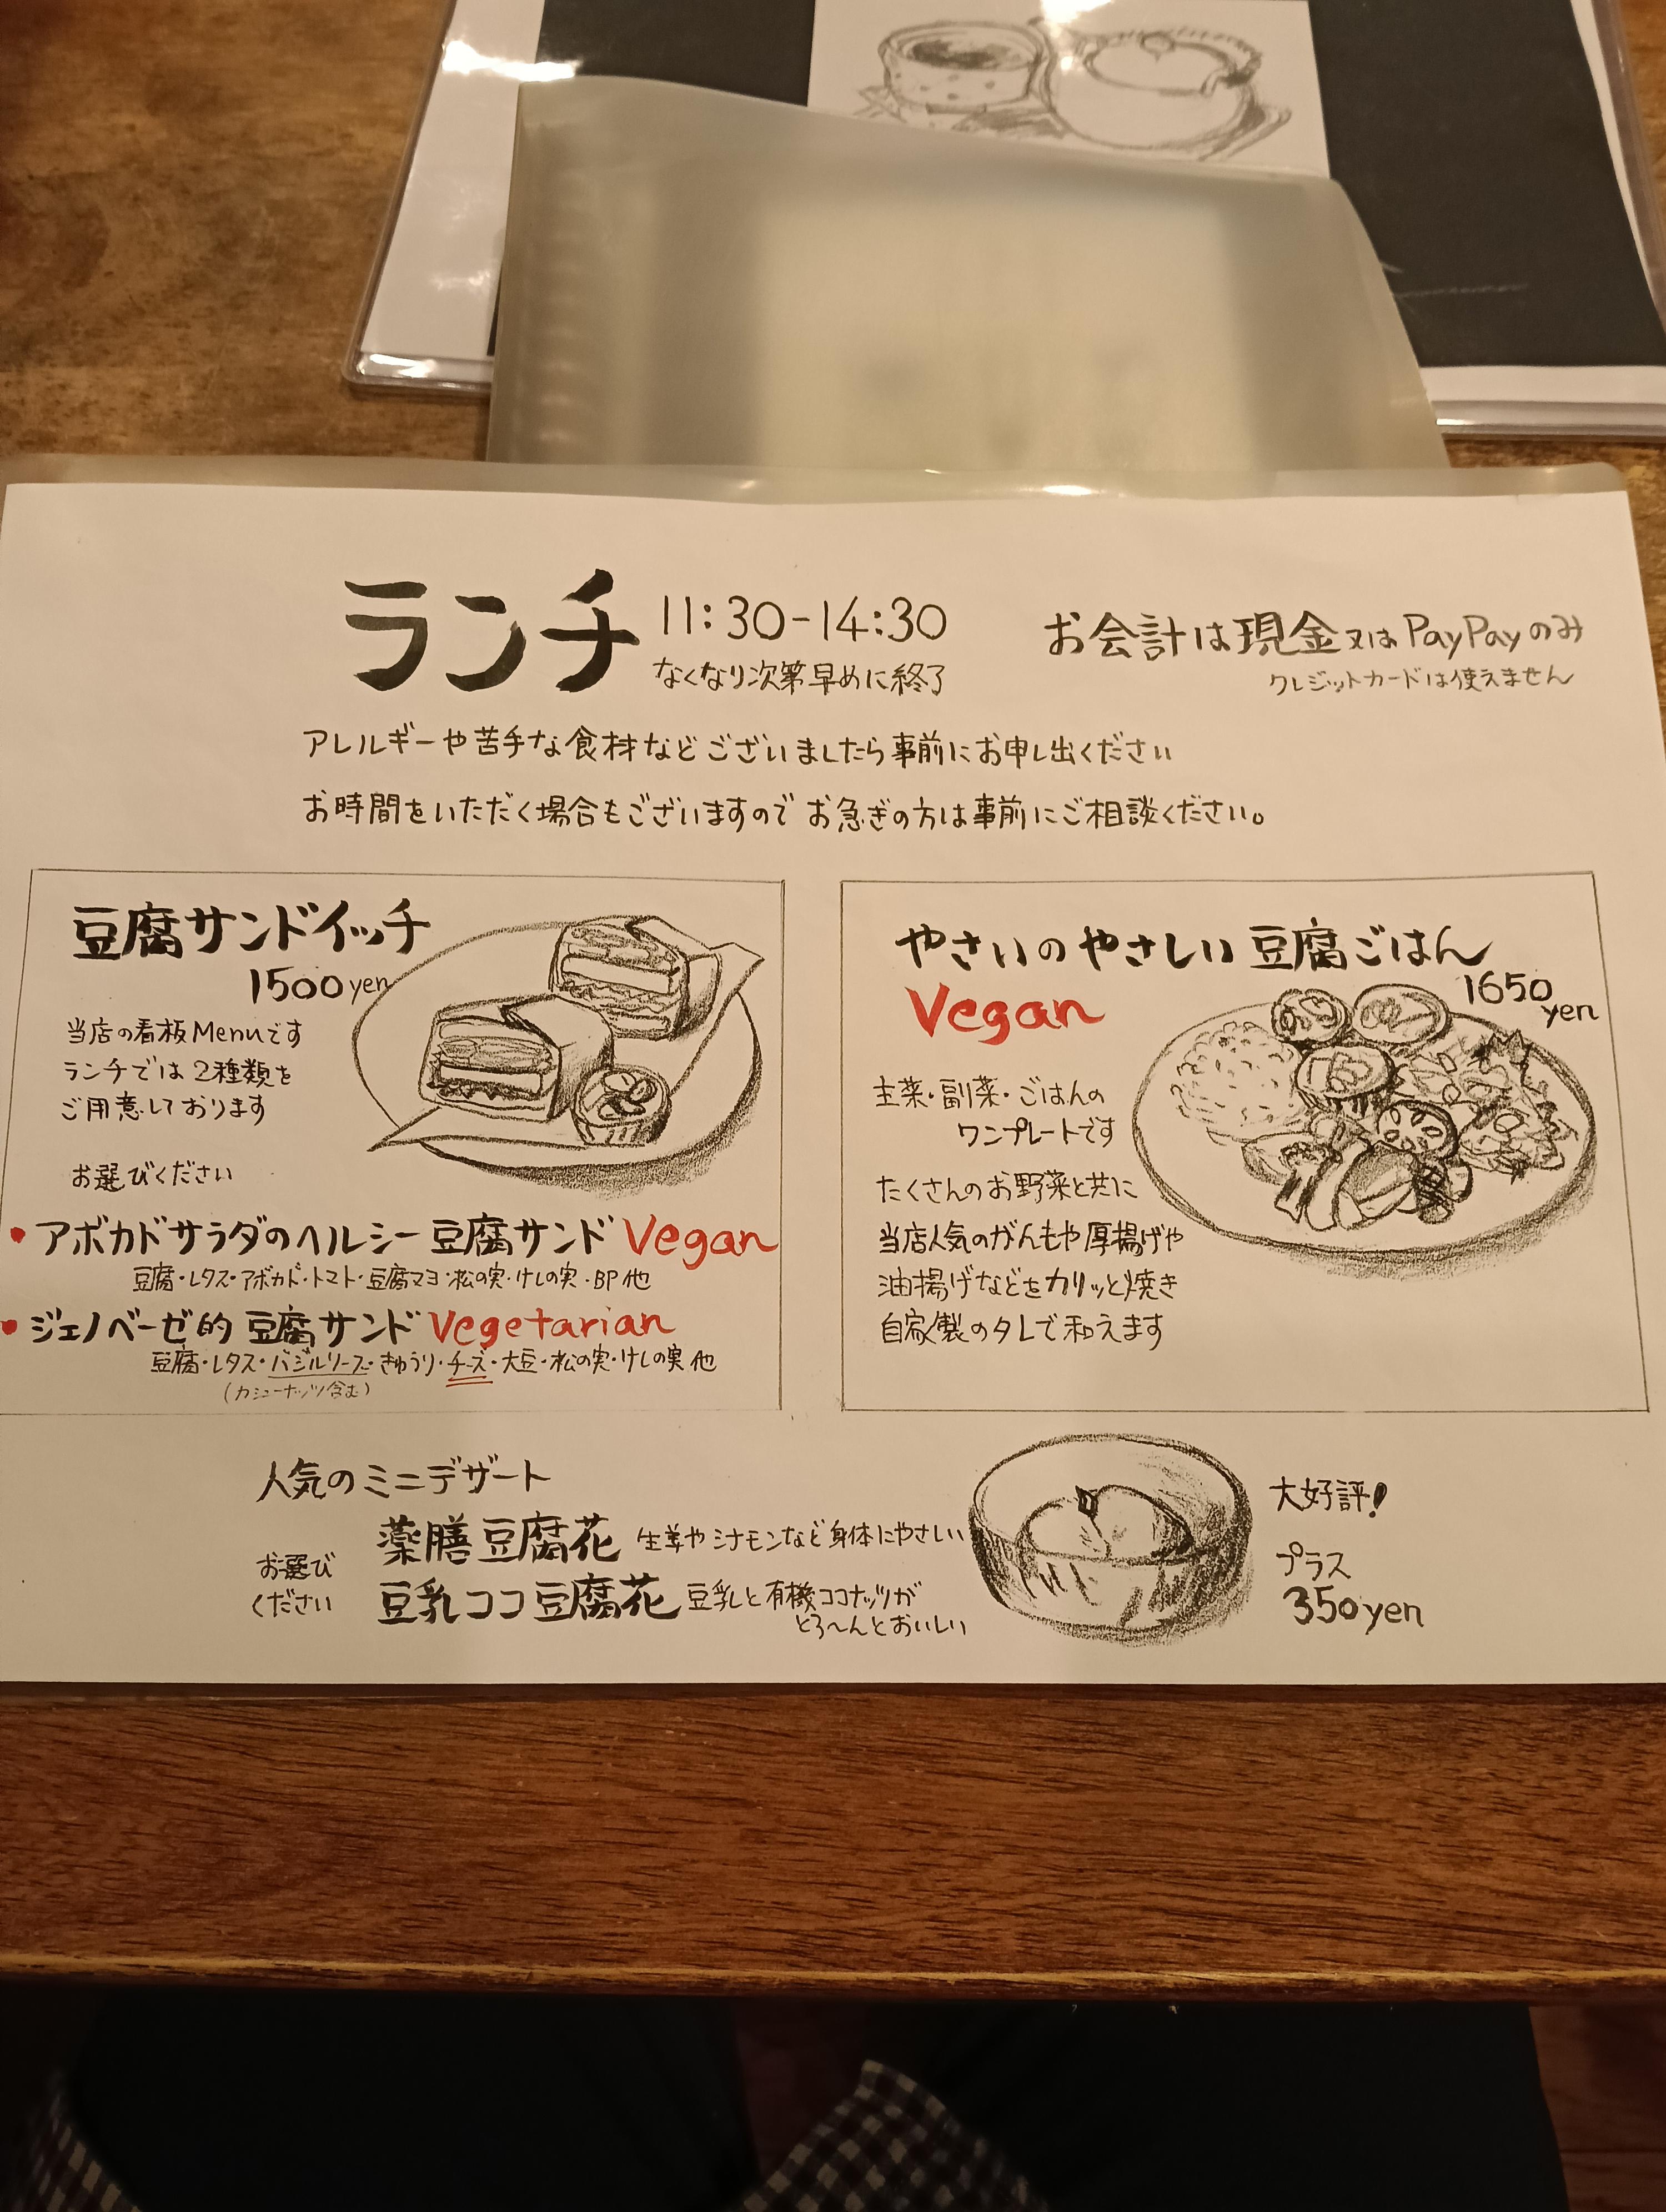 ランチ 11:30-14:30
なくなり次第早めに終了
お会計は現金又はPayPayのみ
クレジットカードは使えません
アレルギーや苦手な食材などございましたら事前にお申し出ください
お時間をいただく場合もございますのでお急ぎの方は事前にご相談ください。
豆腐サンドイッチ
1500yen
当店の看板Menuです
ランチでは2種類を
ご用意しております
お選びください
• アボカドサラダのヘルシー豆腐サンド Vegan
豆腐・レタス・アボカド・トマト・豆腐マヨ・松の実・けしの実・BP他
• ジェノベーゼ的豆腐サンド Vegetarian
豆腐・レタス・バジルソース・きゅうり・チーズ・大豆・松の実・けしの実他
(カシューナッツ含む)
やさいのやさしい豆腐ごはん
Vegan
1650
yen
主菜・副菜・ごはんの
ワンプレートです
たくさんのお野菜と共に
当店人気のがんもや厚揚げや
油揚げなどをカリッと焼き
自家製のタレで和えます
人気のミニデザート
お選び
ください
薬膳豆腐花 生姜やシナモンなど身体にやさしい
豆乳ココ豆腐花 豆乳と有機ココナッツが
とろ〜んとおいしい
大好評!
プラス
350yen